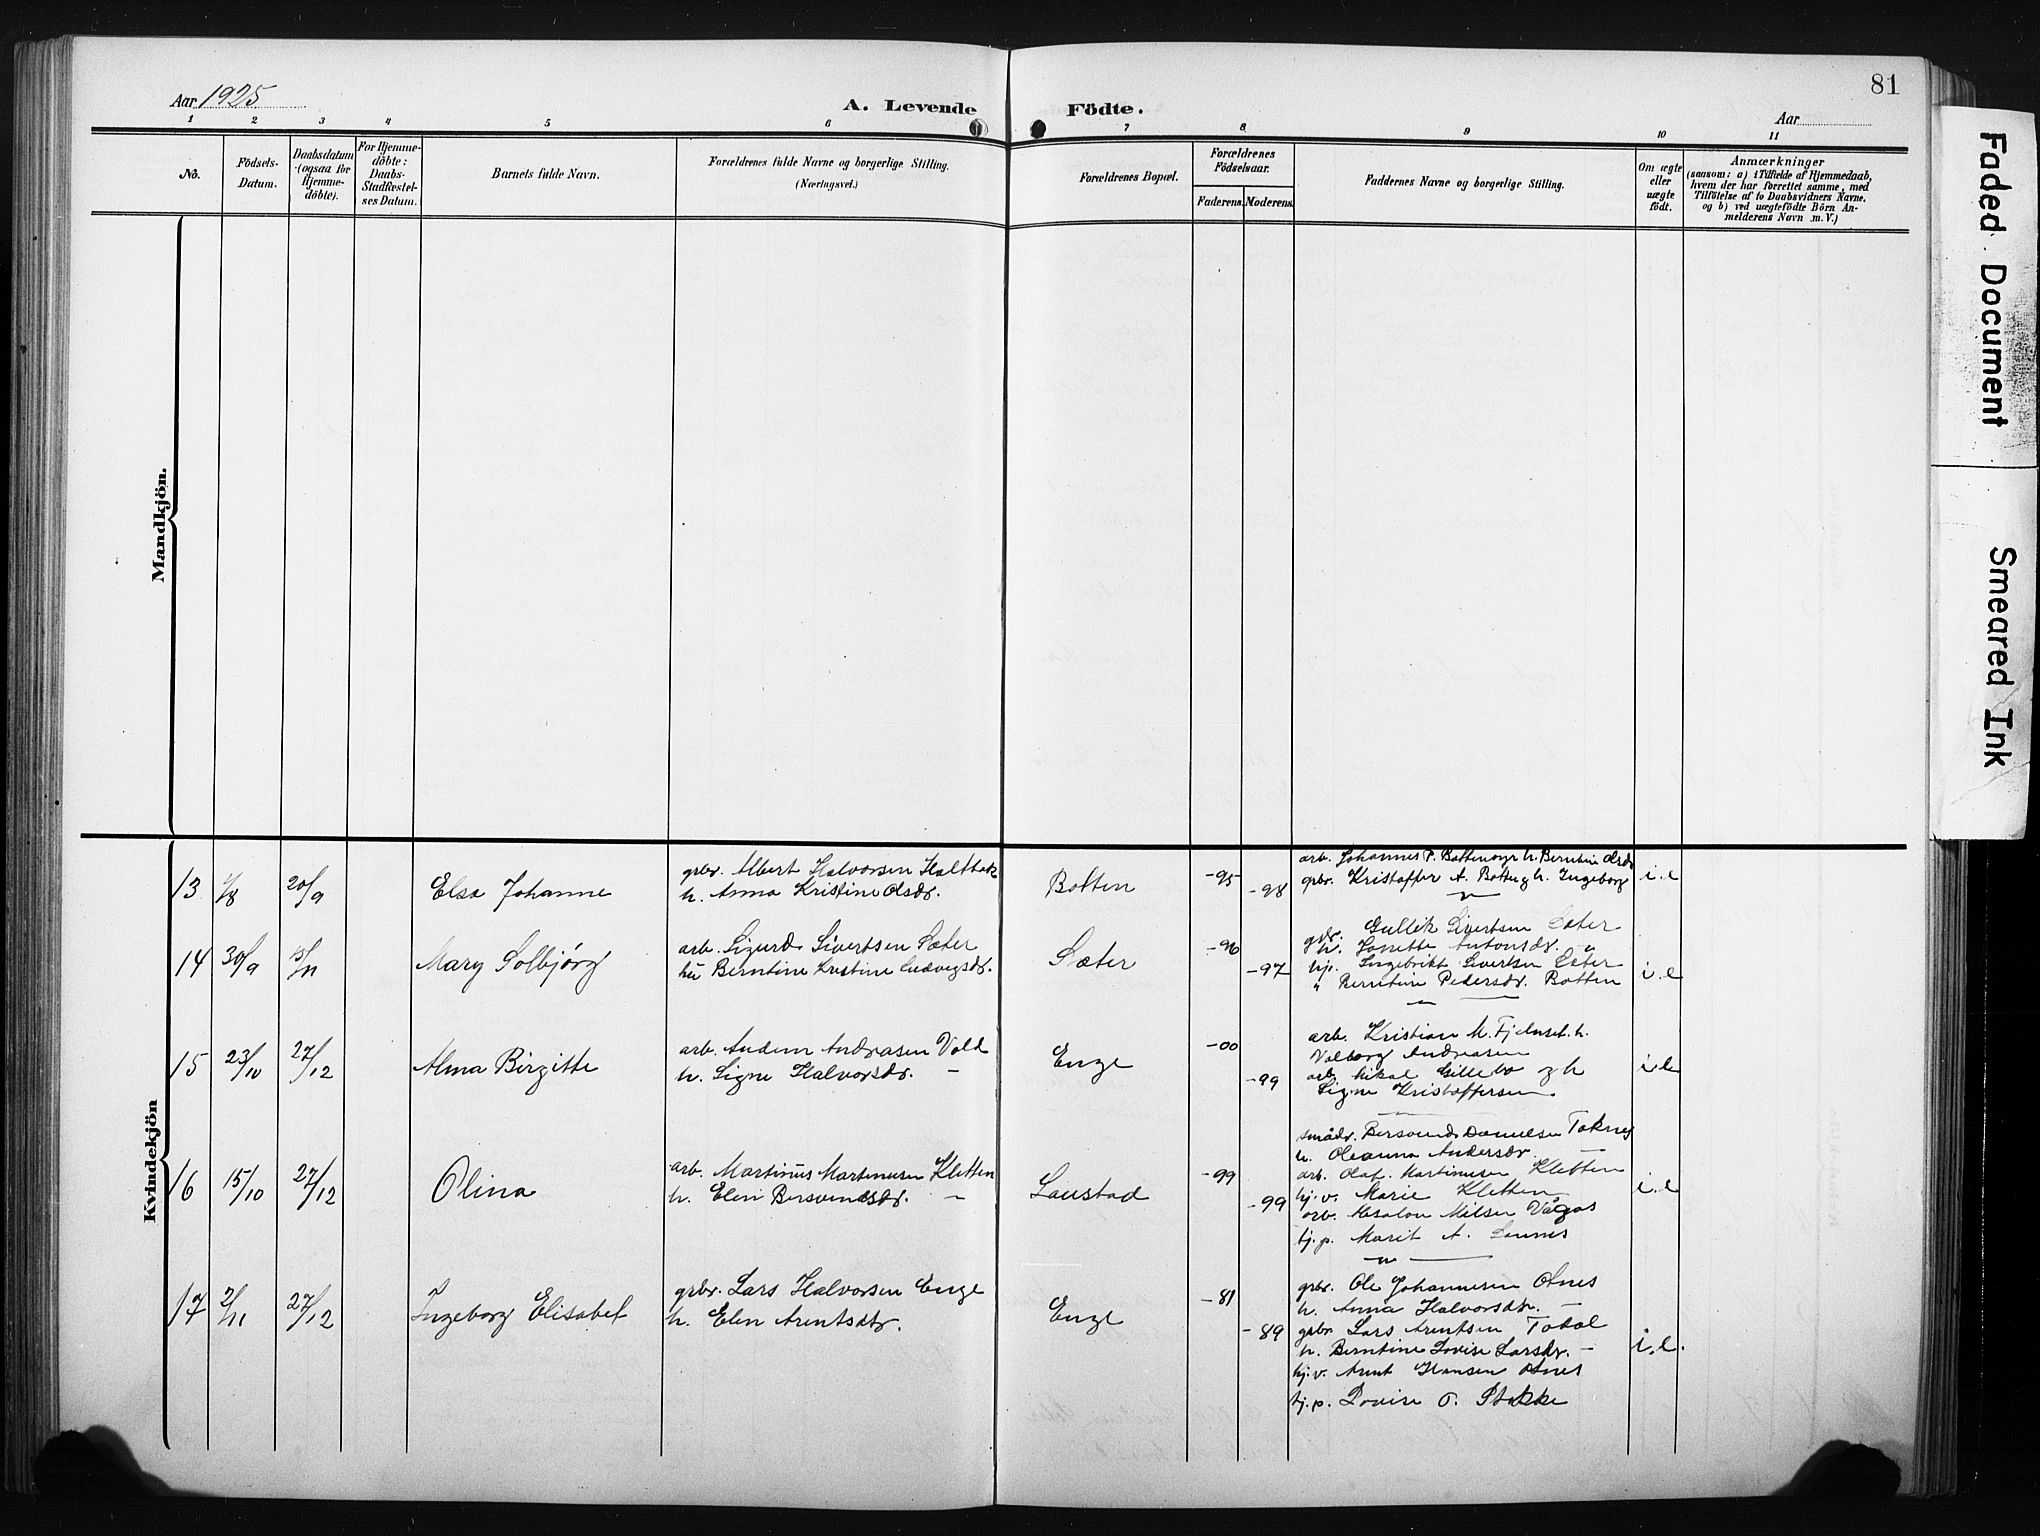 81
Aar 1925
A. Levende
Födte.
Aar
1 2 3 4 5 6 7 8 9 10 11
No.
Födsels-
Datum.
Daabsdatum
(ogsaa for
Hjemme-
döbte).
For Hjemme-
döbte:
Daabs-
Stadfæstel-
ses Datum.
Barnets fulde Navn.
Forældrenes fulde Navne og borgerlige Stilling.
(Næringsvei.)
Forældrenes Bopæl.
Forældrenes
Födselsaar.
Faderens. Moderens.
Faddernes Navne og borgerlige Stilling.
Om ægte
eller
uægte
födt.
Anmærkninger
(saasom: a) i Tilfælde af Hjemmedaab,
hvem der har forrettet samme, med
Tilföielse af to Daabsvidners Navne.
og b) ved uægtefödte Börn An-
melderens Navn m. V.)
Mandkjön.
Kvindekjön
13 1/8 20/9 Elsa Johanne
grbr. Albert Halvorsen
h. Anna Kristine Olsdr.
Botten
-95
-98
arb. Johannes P. h. Berntine Olsdr
grbr. Kristoffer A. h. Ingeborg
i.e
14 30/9 15/11 Mary Solbjørg
arb. Sigurd Sivertsen Sæter
hu Berntine Kristine Ludvigsdr.
Sæter
-96
-97
gbr. Gullik Sivertsen Sæter
h. Antonsdr. "
Ingebrikt Sivertsen Sæter
" Berntine Pedersdr. Botten
i.e
15 23/10 27/12 Alma Birgitte
arb. Andreasen Vold
h. Signe Halvorsdr. -
Enge
-00
-99
arb. Kristian M. h.
Valborg Andreasen
arb. Mikal og h
Signe Kristoffersen
i.e
16 15/10 27/12 Olina
arb. Martinus Martinusen Kletten
h. Elen Bersvendsdr. -
Laustad
-99
-99
småbr. Bersvend Danielsen
h. Oleanna Andersdr. -
arb. Olaf Martinusen Kletten
hj.v. Marie Kletten
arb. Absalon Nilsen
tj.p. Marit A.
i.e
17 2/11 27/12 Ingeborg Elisabet
grbr. Lars Halvorsen Enge
h. Elen Arentsdtr.
Enge
-81
-89
grbr. Ole Johannesen Otnes
h. Anna Halvorsdtr. -
grbr Lars Arentsen Todal
h. Berntine Lovise Larsdr. -
hj.v. Arent Hansen Otnes
tj.p. Lovise O. Stokke
i.e.
Faded Document
Smeared Ink